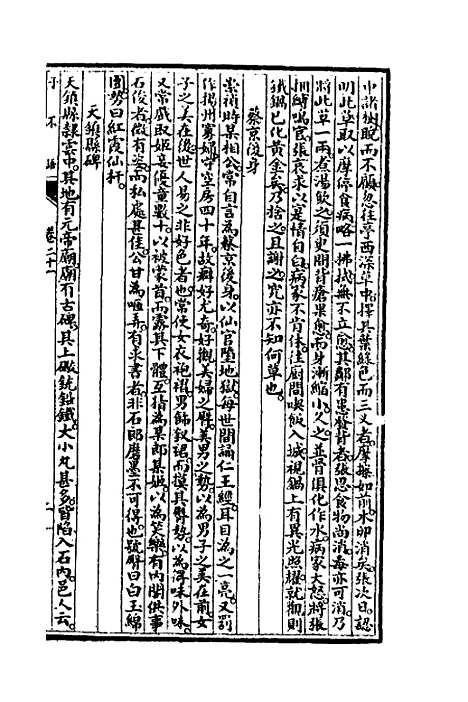 中諸樹晚而不顧忽往亭西深草中擇其葉綠色而三叉者摩擦如前木卽消矣張次日認
明此草取以摩停食病略一拂拭無不立愈其鄰有患發背者張思食物尚消毒亦可消乃
將此草一兩煮湯飲之須臾間背瘡果愈而身漸縮小久之並骨俱化作水病家大怒將張
捆縛鳴官張哀求以實情自白病家不肯信往廚間喚飯入城視鍋上有異光照耀就觀則
鐵鍋已化黃金矣乃捨之且謝之究亦不知何草也
蔡京後身
崇禎時某相公常自言為蔡京後身以仙官墮地獄每世間誦仁王經耳目為之一亮又罰
作揚州寡婦守空房四十年故癖好尤奇好觀美婦之臀美男之勢以為男子之美在前女
子之美在後世人易之非好色者也常使女衣袍褶男飾釵珥而摸其臀勢以為得味外味
又常戲取姬妾優童數十以被蒙首而露其下體互猜為某郎某姬以為笑樂有內閣供事
石俊者微有姿而私處甚佳公甘為咂弄有求書者非石郎磨墨不可得也號臀曰白玉綿
團勢曰紅霞仙杵
天鎮縣碑
天鎮縣隸雲中其地有元帝廟廟有古碑其上礮銃鉛鐵大小丸甚多皆陷入石內邑人云
子不語
卷二十一